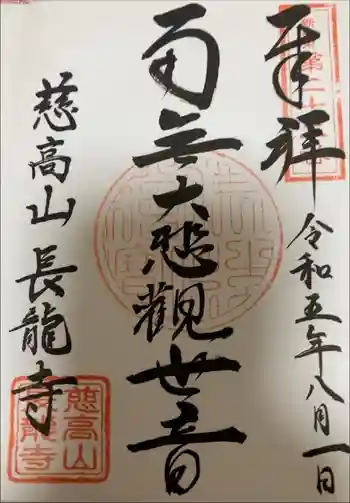 奉拝
令和五年八月一日
南無大悲觀世音
慈高山
長龍寺
慈高山
長龍寺